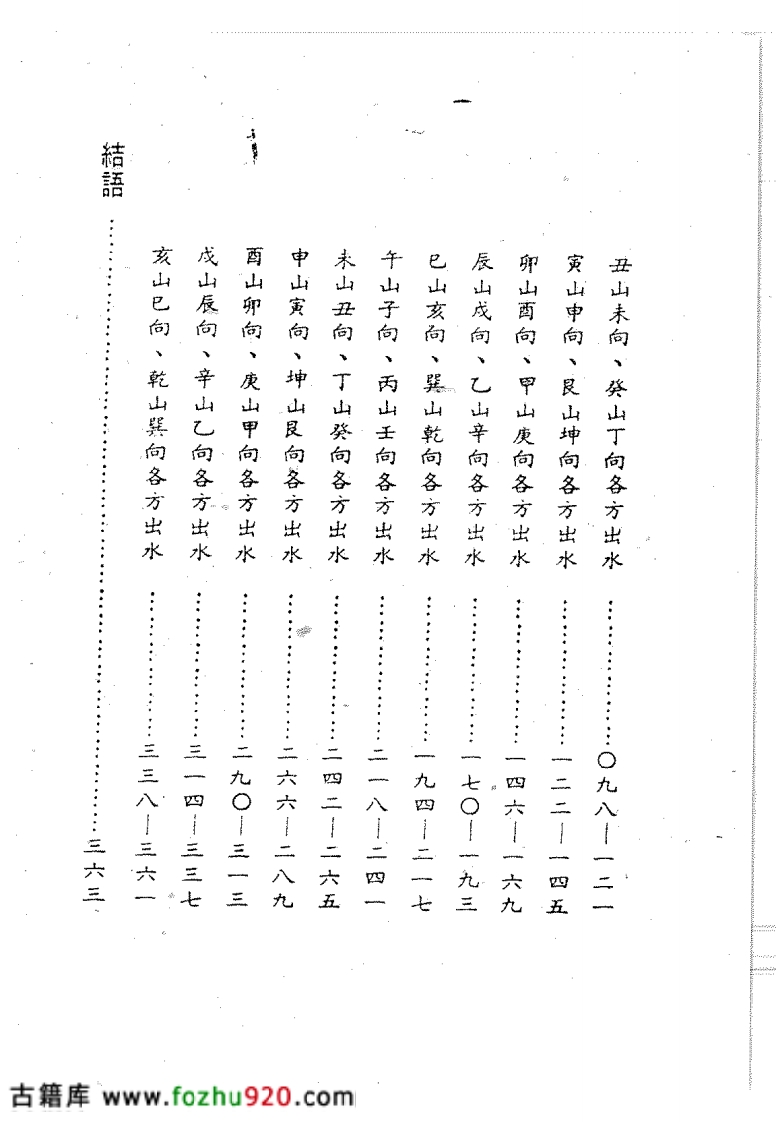 丑山未向、癸山丁向各方出水……………〇九八—一二一
寅山申向、艮山坤向各方出水……………一二二—一四五
卯山酉向、甲山庚向各方出水……………一四六—一六九
辰山戌向、乙山辛向各方出水……………一七〇—一九三
巳山亥向、巽山乾向各方出水……………一九四—二一七
午山子向、丙山壬向各方出水……………二一八—二四一
未山丑向、丁山癸向各方出水……………二四二—二六五
申山寅向、坤山艮向各方出水……………二六六—二八九
酉山卯向、庚山甲向各方出水……………二九〇—三一三
戌山辰向、辛山乙向各方出水……………三一四—三三七
亥山巳向、乾山巽向各方出水……………三三八—三六一
結語……………………………………三六三
古籍库 www.fozhu920.com